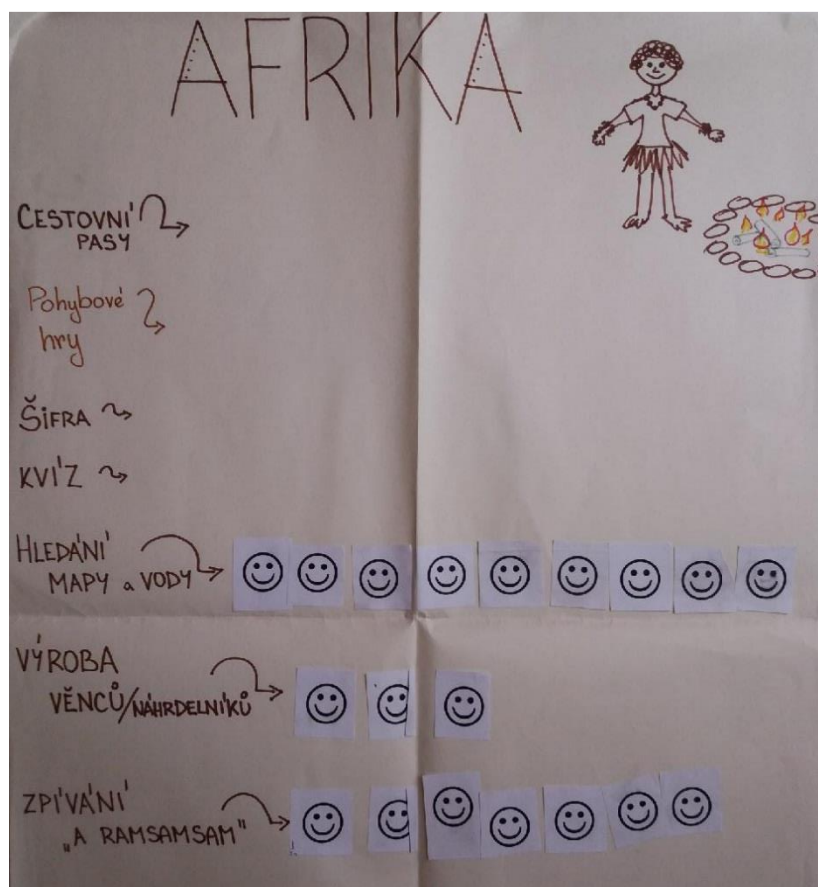 AFRIKA
CESTOVNÍ
PASY
Pohybové
hry
ŠIFRA
KVÍZ
HLEDÁNÍ
MAPY a VODY
VÝROBA
VĚNCŮ/NÁHRDELNÍKŮ
ZPÍVÁNÍ
„A RAMSAMSAM"